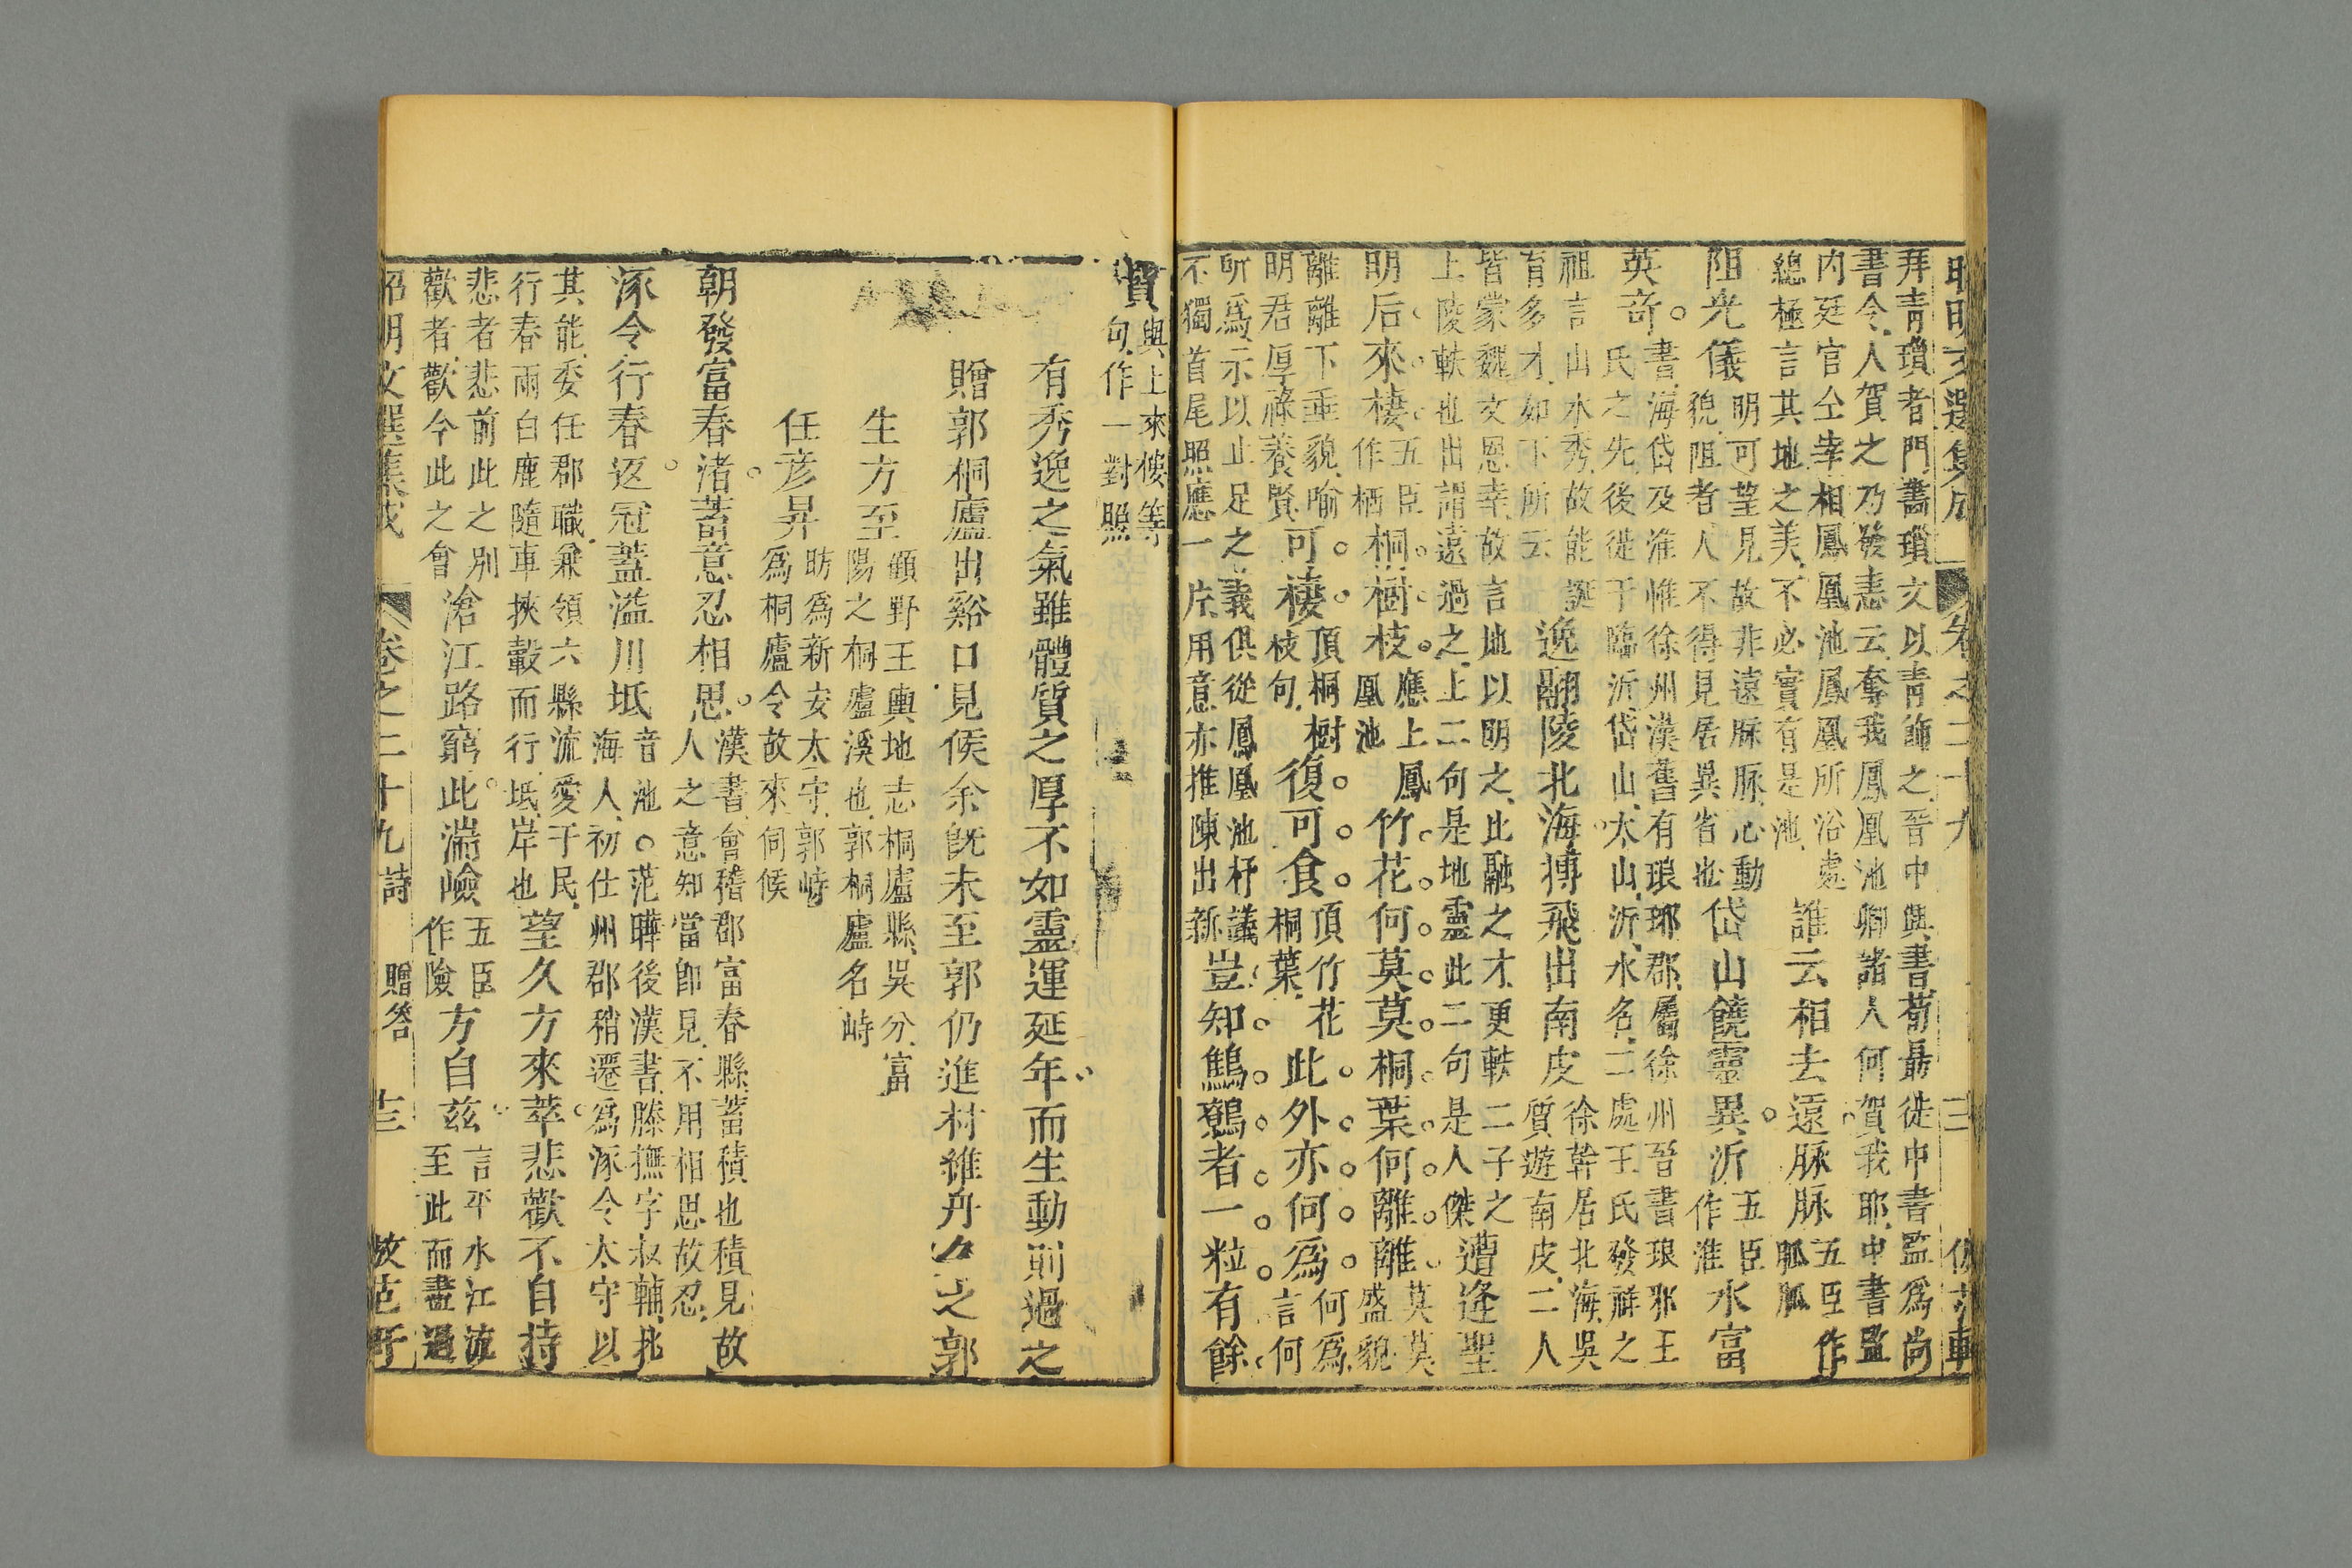 昭明文選集成 卷之二十九 三 倣范軒
拜青瑣者門畵瑣文以青飾之晉中興書荀勗徙中書監爲尚
書令人賀之乃發恚云奪我鳳凰池卿諸人何賀我耶中書監
内廷官仝幸相鳳凰池鳳凰所浴處
總極言其地之美不必實有是池
誰云相去遠脉脉
五臣作
脈脈
阻光儀
明可望見故非遠脉脉心動
貌阻者人不得見居異省也
岱山饒靈異沂
五臣
作淮
水富
英奇
書海岱及淮惟徐州漢舊有琅琊郡屬徐州晉書琅邪王
氏之先後徙于臨沂岱山太山沂水名二處王氏發祥之
祖言山水秀故能誕
育多才如下所云
逸翮陵北海搏飛出南皮
徐幹居北海吳
質遊南皮二人
皆蒙魏文恩幸故言地以明之此融之才更軼二子之
上陵軼也出謂遠過之上二句是地靈此二句是人傑
遭逢聖
明后來棲
五臣
作栖
桐樹枝
應上鳳
凰池
竹花何莫莫桐葉何離離
莫莫
盛貌
離離下垂貌喻
明君厚祿養賢
可棲
頂桐樹
枝句
復可食
頂竹花
桐葉
此外亦何爲
何爲
言何
所爲示以止足之義俱從鳳凰池杼議
不獨首尾照應一片用意亦推陳出新
豈知鷦鷯者一粒有餘
貲
與上來儀等
句作一對照
有秀逸之氣雖體質之厚不如靈運延年而生動則過之
贈郭桐廬出谿口見候余旣未至郭仍進村維舟久之郭
生方至
顧野王輿地志桐廬縣吳分富
陽之桐廬溪也郭桐廬名峙
任彦昇
昉爲新安太守郭峙
爲桐廬令故來伺候
朝發富春渚蓄意忍相思
漢書會稽郡富春縣蓄積也積見故
人之意知當卽見不用相思故忍
涿令行春返冠蓋溢川坻
音池○范曄後漢書滕撫字叔輔北
海人初仕州郡稍遷爲涿令太守以
其能委任郡職兼領六縣流愛于民
行春雨白鹿隨車挾轂而行坻岸也
望久方來萃悲歡不自持
悲者悲前此之別
歡者歡今此之會
滄江路窮此湍嶮
五臣
作險
方自茲
言平水江流
至此而盡過
昭明文選集成 卷之二十九 詩 贈答 三 倣范軒